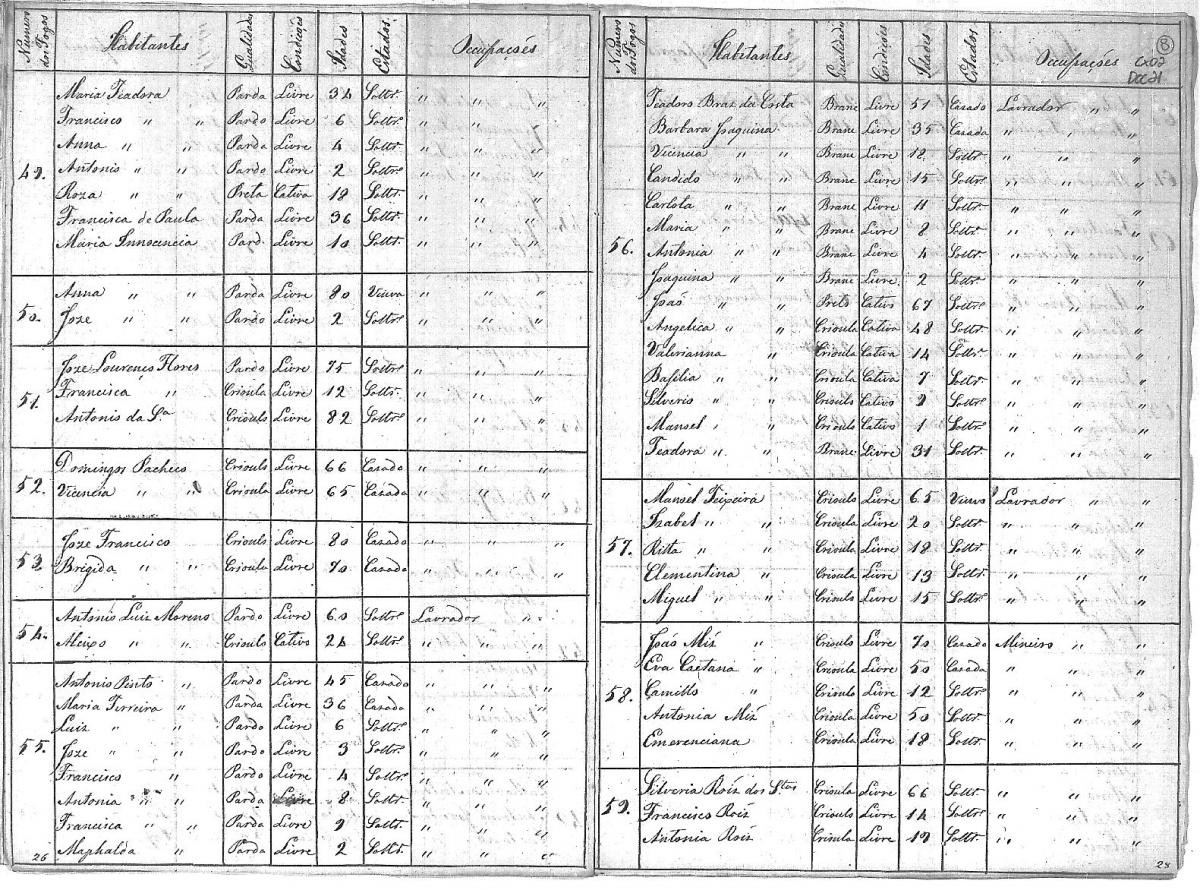 Numos dos Fogos Habitantes Qualidades Condições Idades Estados Occupaçoẽs
Maria Teadora Parda Livre 34 Soltrª
Francisco " " Pardo Livre 6 Soltrº " " "
Anna " " Parda Livre 4 Soltrª " " "
49. Antonio " " Pardo Livre 2 Soltrº " " "
Roza " " Preta Cativa 18 Soltrª " " "
Francisca de Paula Parda Livre 36 Soltrª " " "
Maria Innocencia Pard. Livre 10 Soltrª " " "
Anna " " Parda Livre 80 Viuva " " "
50. Joze " " Pardo Livre 2 Soltrº " " "
Joze Lourenço Flores Pardo Livre 75 Soltrº " " "
51. Francisca " Crioula Livre 12 Soltrª " " "
Antonio da Sª Crioulo Livre 82 Soltrº " " "
Domingos Pacheco Crioulo Livre 66 Cazado " " "
52. Vicencia " " Crioula Livre 65 Cazada " " "
Joze Francisco Crioulo Livre 80 Cazado " " "
53. Brigida " " Crioula Livre 70 Cazada " " "
Antonio Luiz Moreno Pardo Livre 60 Soltrº Lavrador "
54. Aleixo " " Crioulo Cativo 24 Soltrº " " "
Antonio Pinto " Pardo Livre 45 Cazado " " "
Maria Ferreira " Parda Livre 36 Cazada " " "
Luiz " " Pardo Livre 6 Soltrº " " "
55. Joze " " Pardo Livre 3 Soltrº " " "
Francisco " Pardo Livre 4 Soltrº " " "
Antonia " " Parda Livre 8 Soltrª " " "
Francisca " " Parda Livre 9 Soltrª " " "
Maphalda " Parda Livre 2 Soltrª " " "
26
Numos dos Fogos Habitantes Qualidades Condições Idades Estados Occupaçoẽs
8
Cx02
Doc21
Teadoro Braz da Costa Branc Livre 51 Cazado Lavrador " "
Barbara Joaquina Branc Livre 35 Cazada " " "
Vicencia " " Branc Livre 18 Soltrª " " "
Candido " " Branc Livre 15 Soltrº " " "
Carlota " " Branc Livre 11 Soltrª " " "
Maria " " Branc Livre 8 Soltrª " " "
56. Antonia " " Branc Livre 4 Soltrª " " "
Joaquina " " Branc Livre 2 Soltrª " " "
Joaõ " Preto Cativo 67 Soltrº " " "
Angelica " " Crioula Cativa 48 Soltrª " " "
Valerianna " Crioula Cativa 14 Soltrª " " "
Bazilia " " Crioula Cativa 7 Soltrª " " "
Silverio " Crioulo Cativo 2 Soltrº " " "
Manoel " " Crioulo Cativo 1 Soltrº " " "
Teadora " " Branc Livre 31 Soltrª " " "
Manoel Teixeira Crioulo Livre 65 Viuvo Lavrador " "
Izabel " " Crioula Livre 20 Soltrª " " "
57. Ritta " " Crioula Livre 18 Soltrª " " "
Clementina " Crioula Livre 13 Soltrª " " "
Miguel " " Crioulo Livre 15 Soltrº " " "
Joaõ Miz " Crioulo Livre 70 Cazado Mineiro " "
Eva Caetana " Crioula Livre 50 Cazada " " "
58. Camillo " Crioulo Livre 12 Soltrº " " "
Antonia Miz Crioula Livre 50 Soltrª " " "
Emerenciana Crioula Livre 18 Soltrª " " "
Silveria Roiz dos Stos Crioula Livre 66 Soltrª " " "
59. Francisco Roiz Crioulo Livre 14 Soltrº " " "
Antonia Roiz Crioula Livre 19 Soltrª " " "